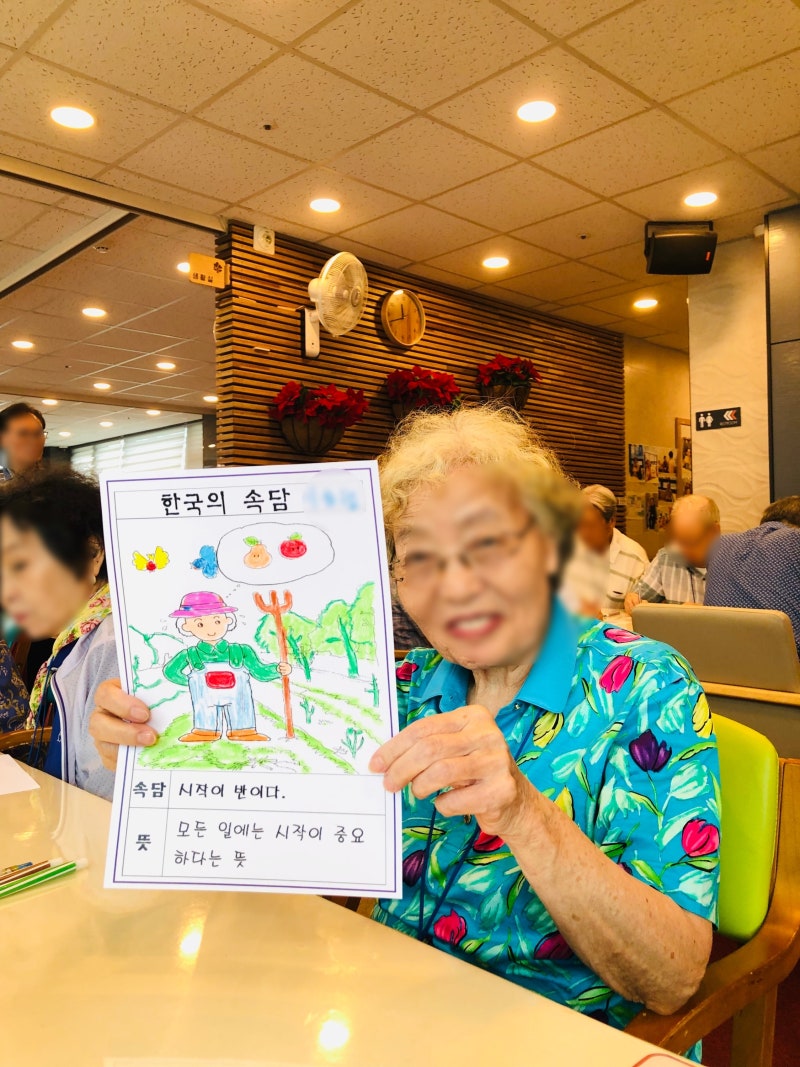 생활실
한국의 속담
속담 시작이 반이다.
뜻 모든 일에는 시작이 중요
하다는 뜻